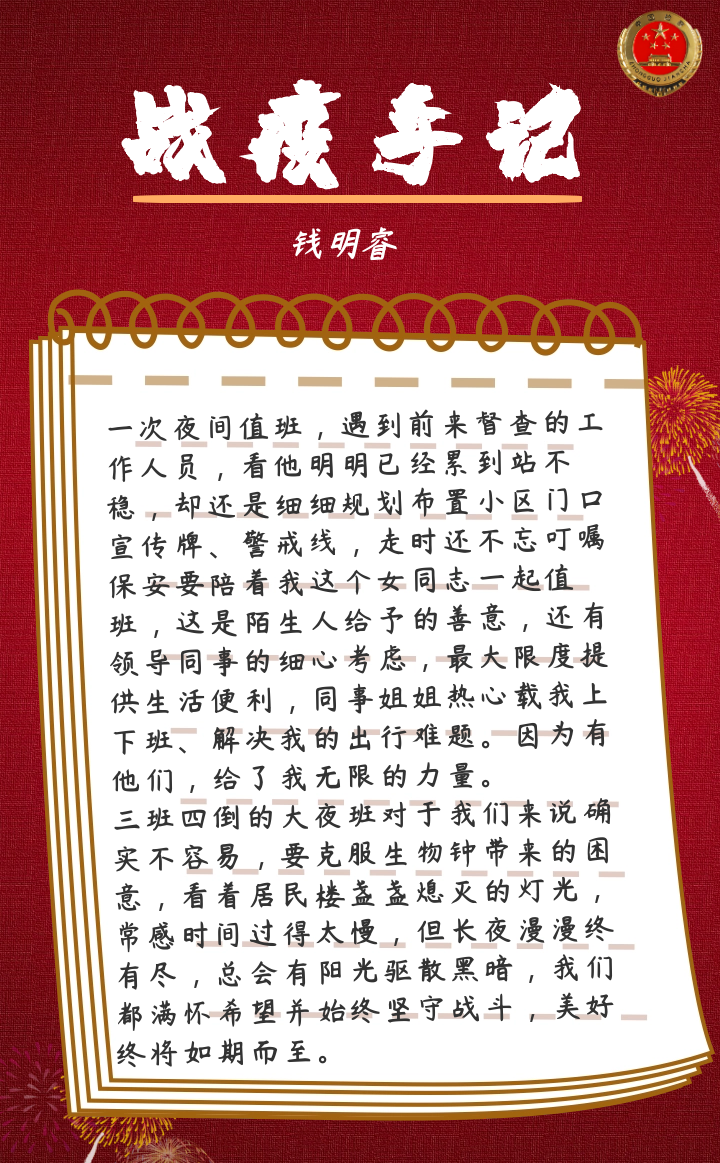 战疫手记
钱明睿
一次夜间值班，遇到前来督查的工
作人员，看他明明已经累到站不
稳，却还是细细规划布置小区门口
宣传牌、警戒线，走时还不忘叮嘱
保安要陪着我这个女同志一起值
班，这是陌生人给予的善意，还有
领导同事的细心考虑，最大限度提
供生活便利，同事姐姐热心载我上
下班、解决我的出行难题。因为有
他们，给了我无限的力量。
三班四倒的大夜班对于我们来说确
实不容易，要克服生物钟带来的困
意，看着居民楼盏盏熄灭的灯光，
常感时间过得太慢，但长夜漫漫终
有尽，总会有阳光驱散黑暗，我们
都满怀希望并始终坚守战斗，美好
终将如期而至。